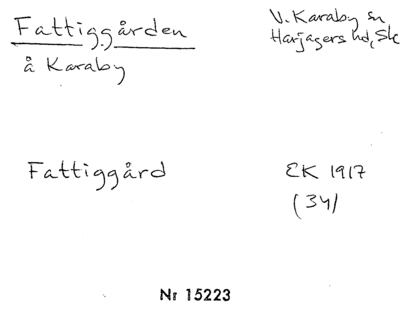 Fattiggården
å Karaby
V. Karaby sn
Harjagers hd, Sk
Fattiggård
EK 1917
(34)
Nr 15223